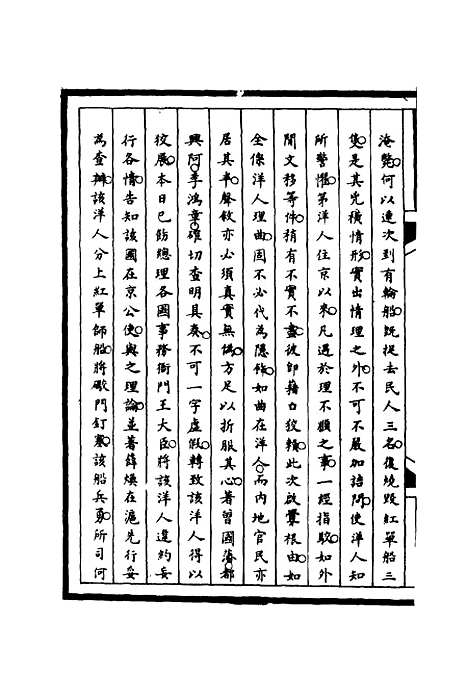 淹斃何以連次到有輪船既捉去民人三名復燒毀紅單船三
隻是其兇橫情形實出情理之外不可不嚴加詰問使洋人知
所警懼第洋人住京以來凡遇於理不順之事一經指駁如外
間文移等件稍有不實不盡彼即藉口狡賴此次啟釁根由如
全係洋人理曲固不必代為隱飾如曲在洋人而內地官民亦
居其半聲敘亦必須真實無僞方足以折服其心著曾國藩都
興阿李鴻章確切查明具奏不可一字虛假轉致該洋人得以
狡展本日已飭總理各國事務衙門王大臣將該洋人違約妄
行各情告知該國在京公使與之理論並著薛煥在滬先行妥
為查辦該洋人分上紅單師船將礮門釘塞該船兵勇所司何